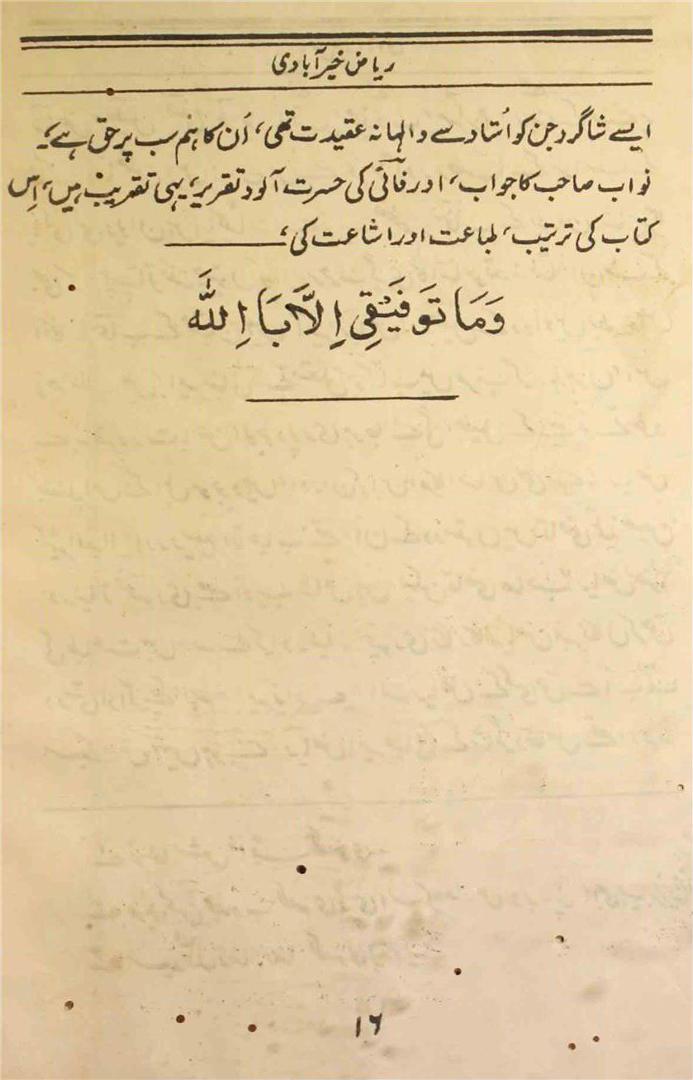 ریاض خیرآبادی
ایسے شاگرد جن کو اُستاد سے والہانہ عقیدت تھی، اُن کا ہم سب پر حق ہے۔
نواب صاحب کا جواب، اور فانی کی حسرت آلود تقریر، یہی تقریب ہیں، اِس
کتاب کی ترتیب، طباعت اور اشاعت کی،
وَمَا تَوفَیقِی اِلَّا بَا اِللَّہ
۱۶